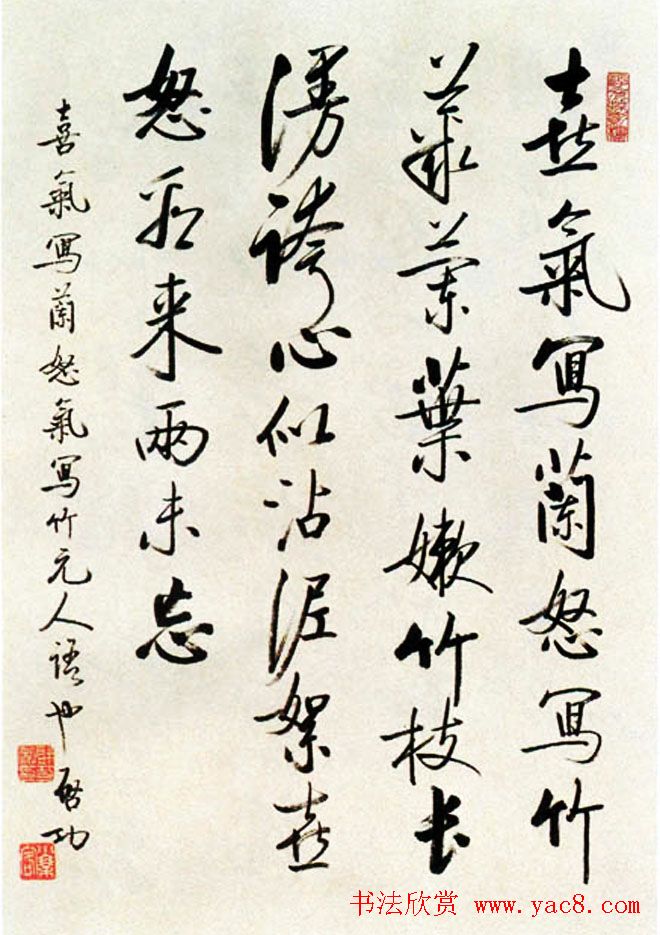 喜氣寫蘭怒寫竹
叢蘭葉嫩竹枝長
漫誇心似沾泥絮喜
怒看来兩未忘
喜氣寫蘭怒氣寫竹元人語也 啓功
书法欣赏 www.yac8.com